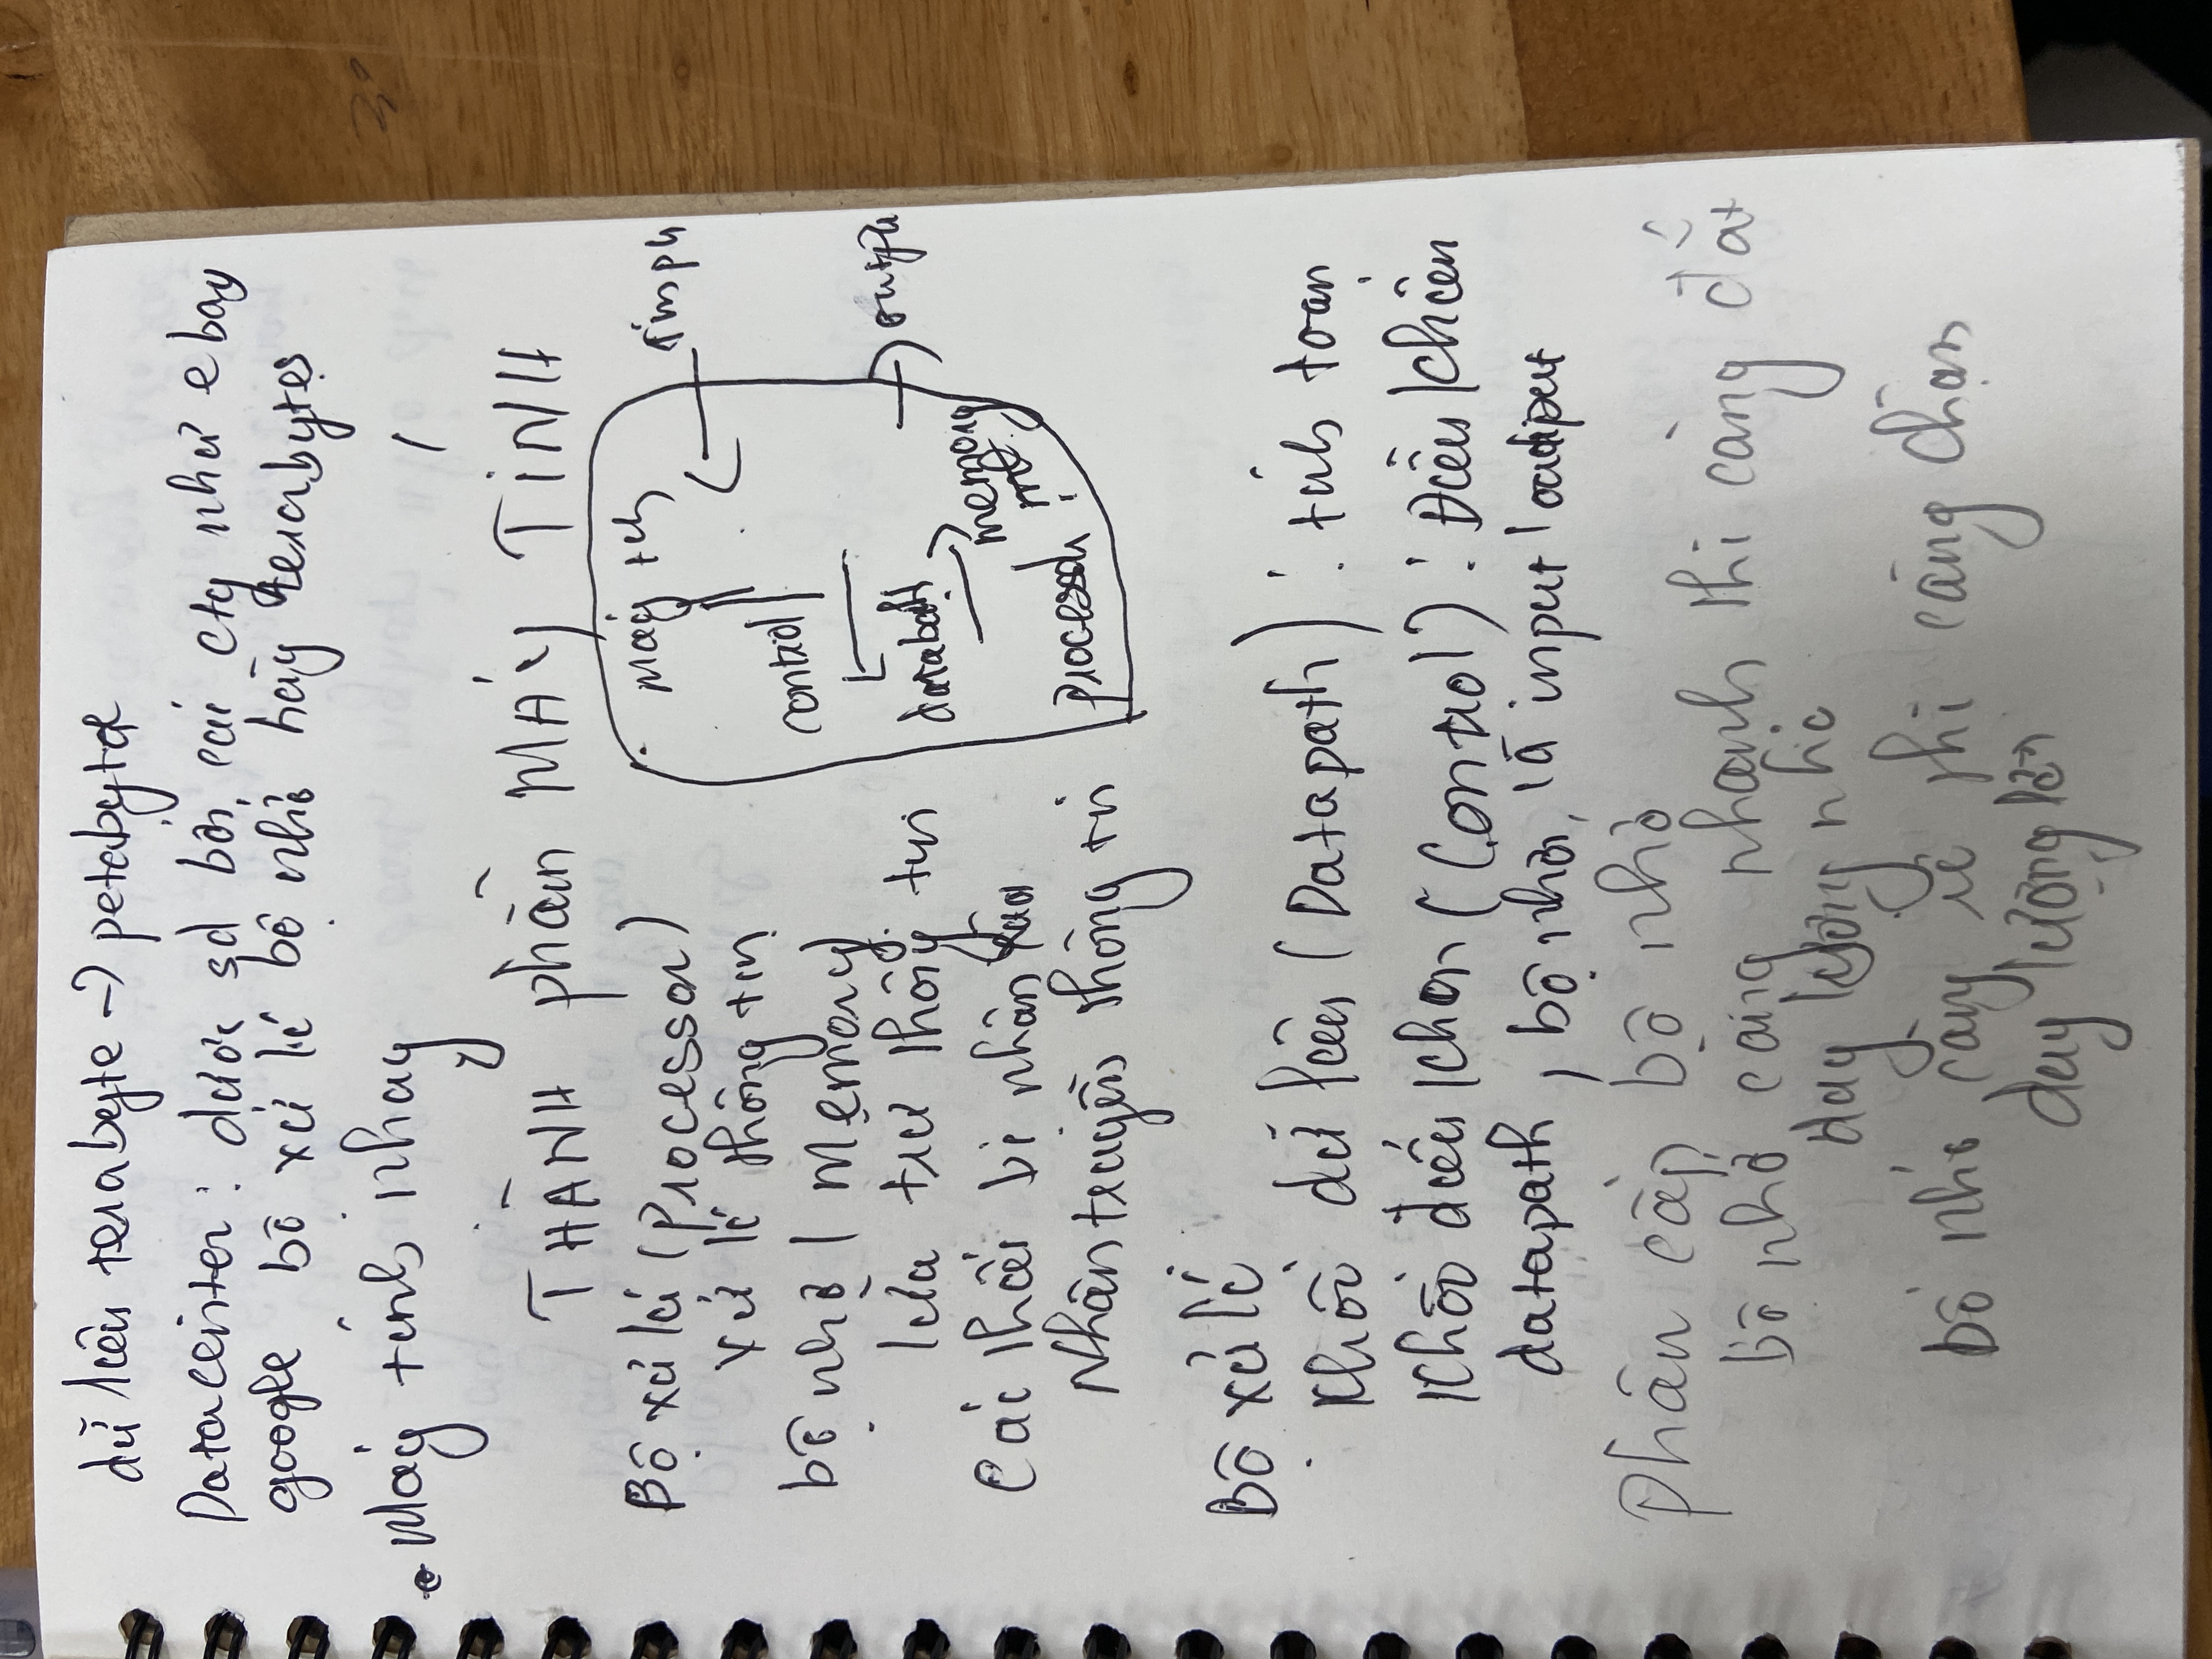 dữ liệu terabyte → petabyte
Datacenter: được sd bởi các cty như ebay
google bộ xử lí bộ nhớ hàng terabytes
• Máy tính nhúng
THÀNH phần MÁY TÍNH
Bộ xử lí (Processor)
xử lí thông tin
bộ nhớ ( Memory
lưu trữ thông tin
Các thiết bị nhập xuất
Nhận truyền thông tin
máy tính
control
datapath
memory
processor
input
output
Bộ xử lí
Khối dữ liệu (Datapath) : tính toán
Khối điều khiển (Control) : Điều khiển
datapath, bộ nhớ, và input | output
Phân cấp bộ nhớ
Bộ nhớ càng nhanh thì càng đắt
dung lượng nhỏ
Bộ nhớ càng rẻ thì càng chậm
dung lượng lớn